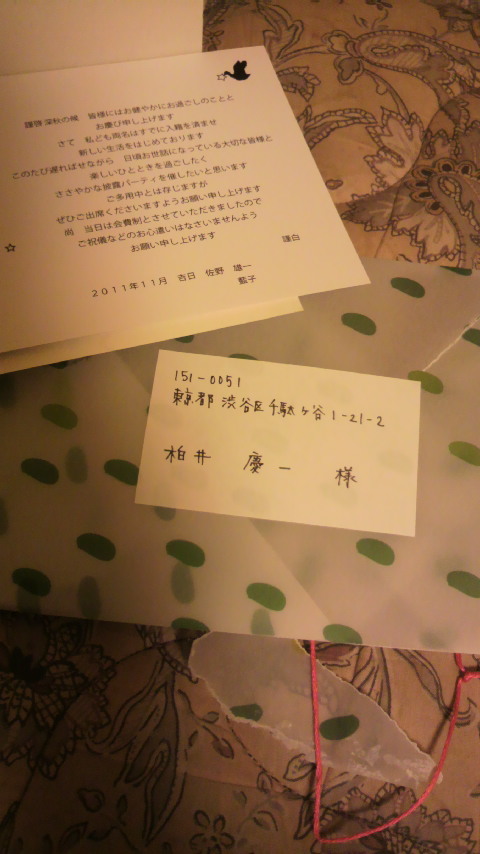 謹啓 深秋の候　皆様にはお健やかにお過ごしのことと
お慶び申し上げます
さて　私ども両名はすでに入籍を済ませ
新しい生活をはじめております
このたび遅ればせながら　日頃お世話になっている大切な皆様と
楽しいひとときを過ごしたく
ささやかな披露パーティを催したいと思います
ご多用中とは存じますが
ぜひご出席くださいますようお願い申し上げます
尚　当日は会費制とさせていただきましたので
ご祝儀などのお心遣いはなさいませんよう
お願い申し上げます
謹白
2011年11月　吉日　佐野　雄一
藍子
151-0051
東京都 渋谷区千駄ヶ谷 1-21-2
柏井　慶一　様